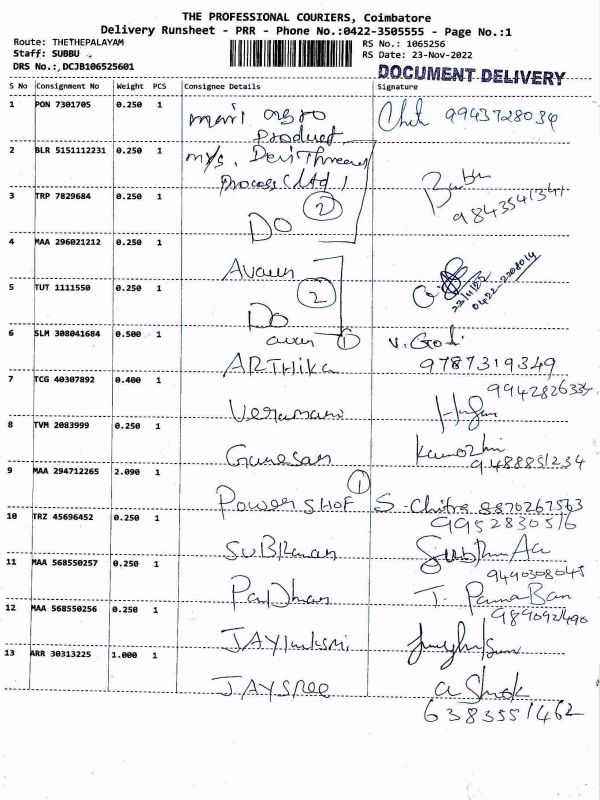 THE PROFESSIONAL COURIERS, Coimbatore
Delivery Runsheet - PRR - Phone No.:0422-3505555 - Page No.:1
Route: THETHEPALAYAM
RS No.: 1065256
Staff: SUBBU
RS Date: 23-Nov-2022
DRS No.: DCJB106525601
DOCUMENT DELIVERY
S No Consignment No Weight PCS Consignee Details Signature
1 PON 7301705 0.250 1
9943728034
Product
2 BLR 5151112231 0.250 1 M/s. Devi
Process (Ltd)
3 TRP 7829684 0.250 1
2
9843541341
Do
4 MAA 296021212 0.250 1
5 TUT 1111550 0.250 1
2
Do
6 SLM 308041684 0.500 1
1
ARTHIKA 9787319349
7 TCG 40307892 0.400 1
9942826334
Veramani
8 TVM 2083999 0.250 1
Ganesan
9488851234
9 MAA 294712265 2.090 1
1
POWER SHOP S. Chitra 8870267563
10 TRZ 45696452 0.250 1
9952830516
11 MAA 568550257 0.250 1
9490308045
12 MAA 568550256 0.250 1
13 ARR 30313225 1.000 1
JAYSREE Ashok
6383551462